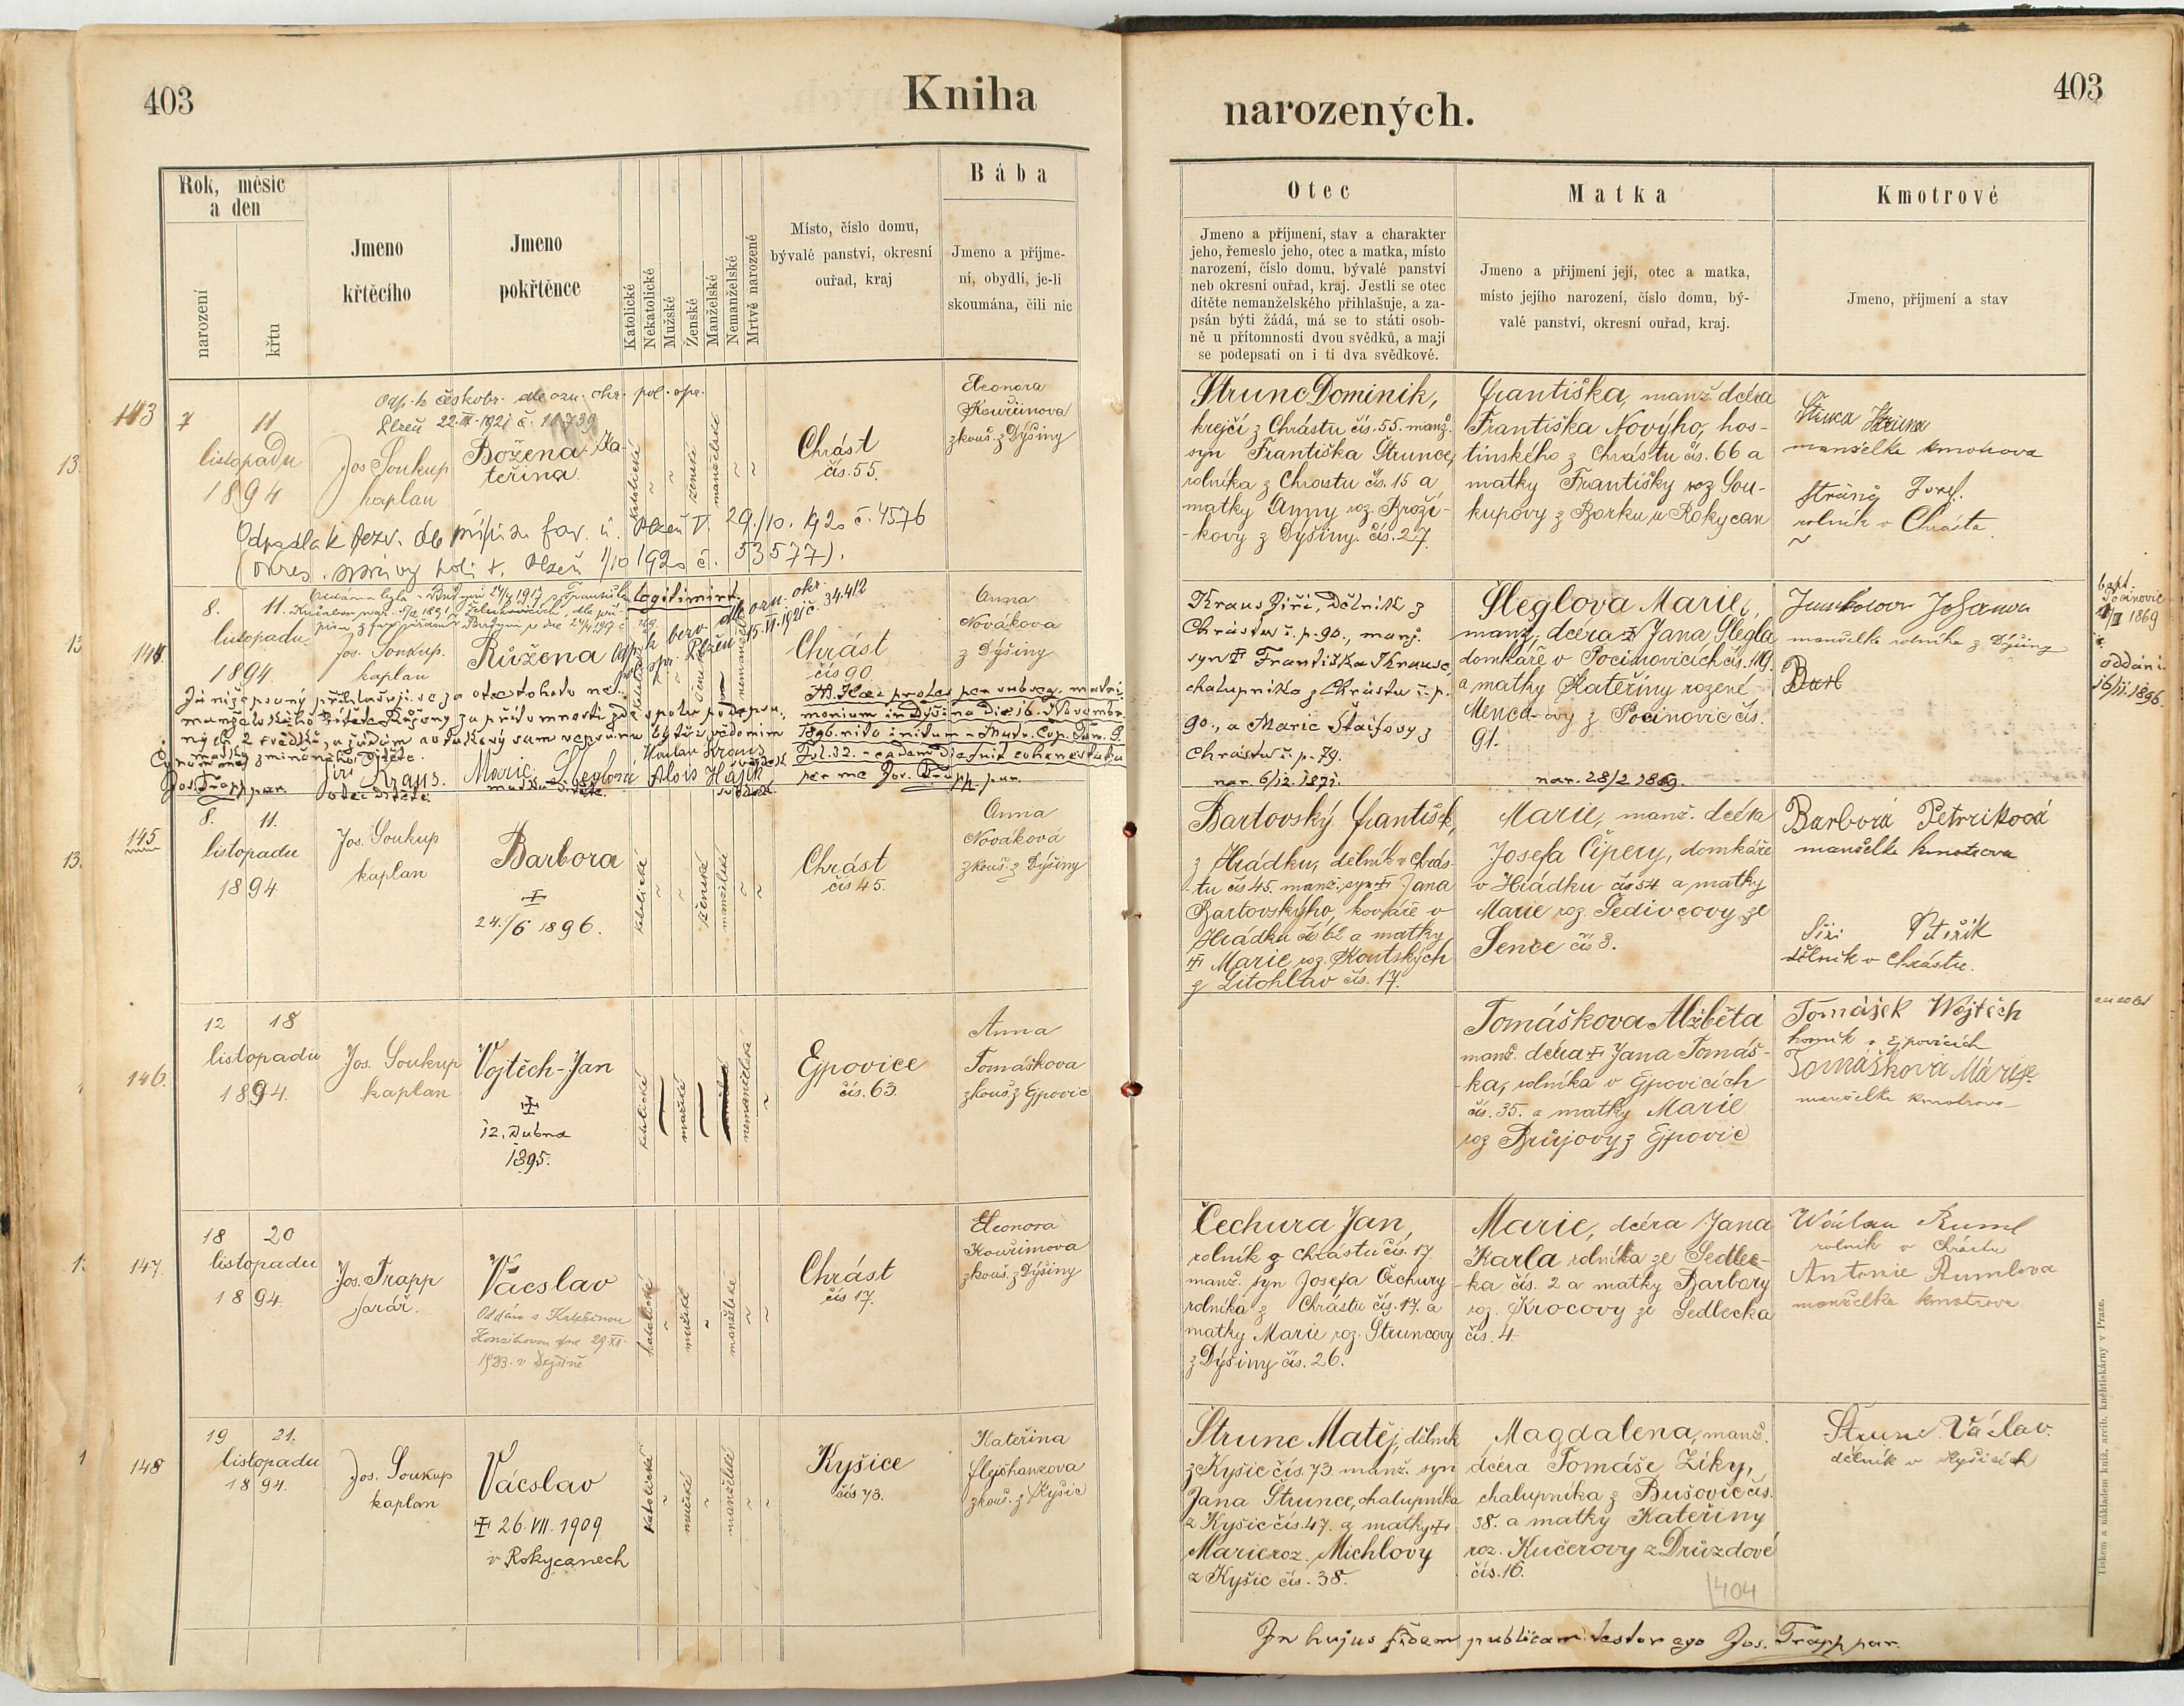 403
Kniha
narozených.
403
Rok, měsíc
a den
narození
křtu
Jmeno
křtěcího
Jmeno
pokřtěnce
Katolické
Nekatolické
Mužské
Ženské
Manželské
Nemanželské
Mrtvě narozené
Místo, číslo domu,
bývalé panství, okresní
ouřad, kraj
Bába
Jmeno a příjme-
ní, obydlí, je-li
skoumána, čili nic
Otec
Jmeno a příjmení, stav a charakter
jeho, řemeslo jeho, otec a matka, místo
narození, číslo domu, bývalé panství
neb okresní ouřad, kraj. Jestli se otec
dítěte nemanželského přihlašuje, a za-
psán býti žádá, má se to státi osob-
ně u přítomnosti dvou svědků, a mají
se podepsati on i ti dva svědkové.
Matka
Jmeno a přijmení její, otec a matka,
místo jejího narození, číslo domu, bý-
valé panství, okresní ouřad, kraj.
Kmotrové
Jmeno, příjmení a stav
143
13.
7 11
listopadu
1894
Odp. k českobr. dle ozn. okr. pol. spr.
Plzeň 22.III.1921 č. 11.739
Jos Soukup
kaplan
Božena-Ka-
teřina
katolické
ženské
manželské
Chrást
čís. 55.
Eleonora
Kouřimova
zkouš. z Dýšiny
Odpadla k bezv. dle přípisu far. ú. Plzeň V. 29./10. 1920 č. 4576
(okres. správy poli t. Plzeň 1/10 1920 č. 53577).
Strunc Dominik,
krejčí z Chrástu čís. 55. manž.
syn Františka Strunce,
rolníka z Chrástu čís. 15 a
matky Anny roz. Broží-
-kovy z Dýšiny. čís. 27.
Františka, manž. dcéra
Františka Nového, hos-
tinského z Chrástu čís. 66 a
matky Františky roz Sou-
kupovy z Borku u Rokycan
manželka kmotrova
Josef
rolník v Chrástu
13
144
8. 11.
listopadu
1894.
Jos. Soukup.
kaplan
Růžena
legitimirt
Odp. k bezv. dle ozn. okr.
pol. spr. Plzeň 15.VI.1921 č. 34.412
Chrást
čís 90
Anna
Nováková
z Dýšiny
Já níže psaný přihlašuji se za otce tohoto ne-
manželského dítěte Růženy za přítomnosti zde spolu podepsa-
ných 2 svědků, a žádám
matky zmíněného dítěte.
Jos. Trapp par.
Jiří Kraus.
otec dítěte.
Marie Šleglová
matka dítěte.
Václav Kraus
svědek
Alois Hájek
svědek.
NB. Haec proles per subseq. matri-
monium in Dýšina die 16. Novembr.
1896. rite initum
Fol. 32.
per me Jos. Trapp, par.
Kraus Jiří, dělník z
Chrástu č. p. 90., manž.
syn ‡ Františka Krause,
chalupníka z Chrástu č. p.
90., a Marie Štaifovy z
Chrástu č. p. 79.
nar. 6/12. 1871.
Šleglova Marie,
manž. dcéra ‡ Jana Šlegla
domkáře v Pocinovicích čís. 119.
a matky Kateřiny rozené
Menclovy z Pocinovic čís.
91.
nar. 28/2 1869.
Johanna
manželka rolníka z Dýšiny
bapt.
Pocinovic
1869
oddáni
16/11.1896.
145
13.
8. 11.
listopadu
1894
Jos. Soukup
kaplan
Barbora
‡
24./6 1896.
katolické
ženské
manželské
Chrást
čís 45.
Anna
Nováková
zkouš. z Dýšiny
Bartovský František,
z Hrádku, dělník v Chrás-
-tu čís 45. manž. syn ‡ Jana
Bartovského, kováře v
Hrádku čís 62 a matky
‡ Marie roz. Koutských
z Litohlav čís. 17.
Marie, manž. dcéra
Josefa Čipery, domkáře
v Hrádku čís 54 a matky
Marie roz. Šedivcovy ze
Sence čís 3.
Barbora Petrrikooá
manželka kmotrova
Jiří Petřík
dělník v Chrástu.
146.
12 18
listopadu
1894.
Jos. Soukup
kaplan
Vojtěch-Jan
‡
12. Dubna
1895.
katolické
mužské
nemanželské
Ejpovice
čís. 63.
Anna
Tomáškova
zkouš. z Ejpovic
Tomáškova Alžběta
manž. dcéra ‡ Jana Tomáš-
-ka, rolníka v Ejpovicích
čís. 35. a matky Marie
roz Brůjovy z Ejpovic
Tomášek Wojtěch
horník v Ejpovicích
Tomáškova Márije
manželka kmotrova
147.
18 20
listopadu
1894.
Jos. Trapp
farář.
Václav
Oddán s Kateřinou
Honzíkovou dne 29.XI.
1923. v Dýšině
katolické
mužské
manželské
Chrást
čís 17.
Eleonora
Kouřimova
zkouš. z Dýšiny
Čechura Jan,
rolník z Chrástu čís. 17
manž. syn Josefa Čechury
rolníka z Chrástu čís. 17. a
matky Marie roz. Struncovy
z Dýšiny čís. 26.
Marie, dcéra Jana
Karla rolníka ze Sedlec-
-ka čís. 2 a matky Barbory
roz. Krocovy ze Sedlecka
čís. 4.
Wáclav Ruml
rolník v Chrástu
Antonie Rumlova
manželka kmotrova
148
19 21.
listopadu
1894.
Jos. Soukup
kaplan
Václav
‡ 26.VII.1909
v Rokycanech
katolické
mužské
manželské
Kyšice
čís 73.
Kateřina
Flejšhanzova
zkouš. z Kyšic
Strunc Matěj, dělník
z Kyšic čís. 73. manž. syn
Jana Strunce, chalupníka
z Kyšic čís. 47. a matky ‡
Marie roz. Michlovy
z Kyšic čís. 38.
Magdalena, manž.
dcéra Tomáše Ziky,
chalupníka z Bušovic čís.
38. a matky Kateřiny
roz. Kučerovy z Drůzdové
čís. 16.
Strunc Václav.
dělník v Kyšicích
404
In hujus fidem publicam testor ego Jos. Trapp par.
Tiskem a nákladem kníž. arcib. kněhtiskárny v Praze.